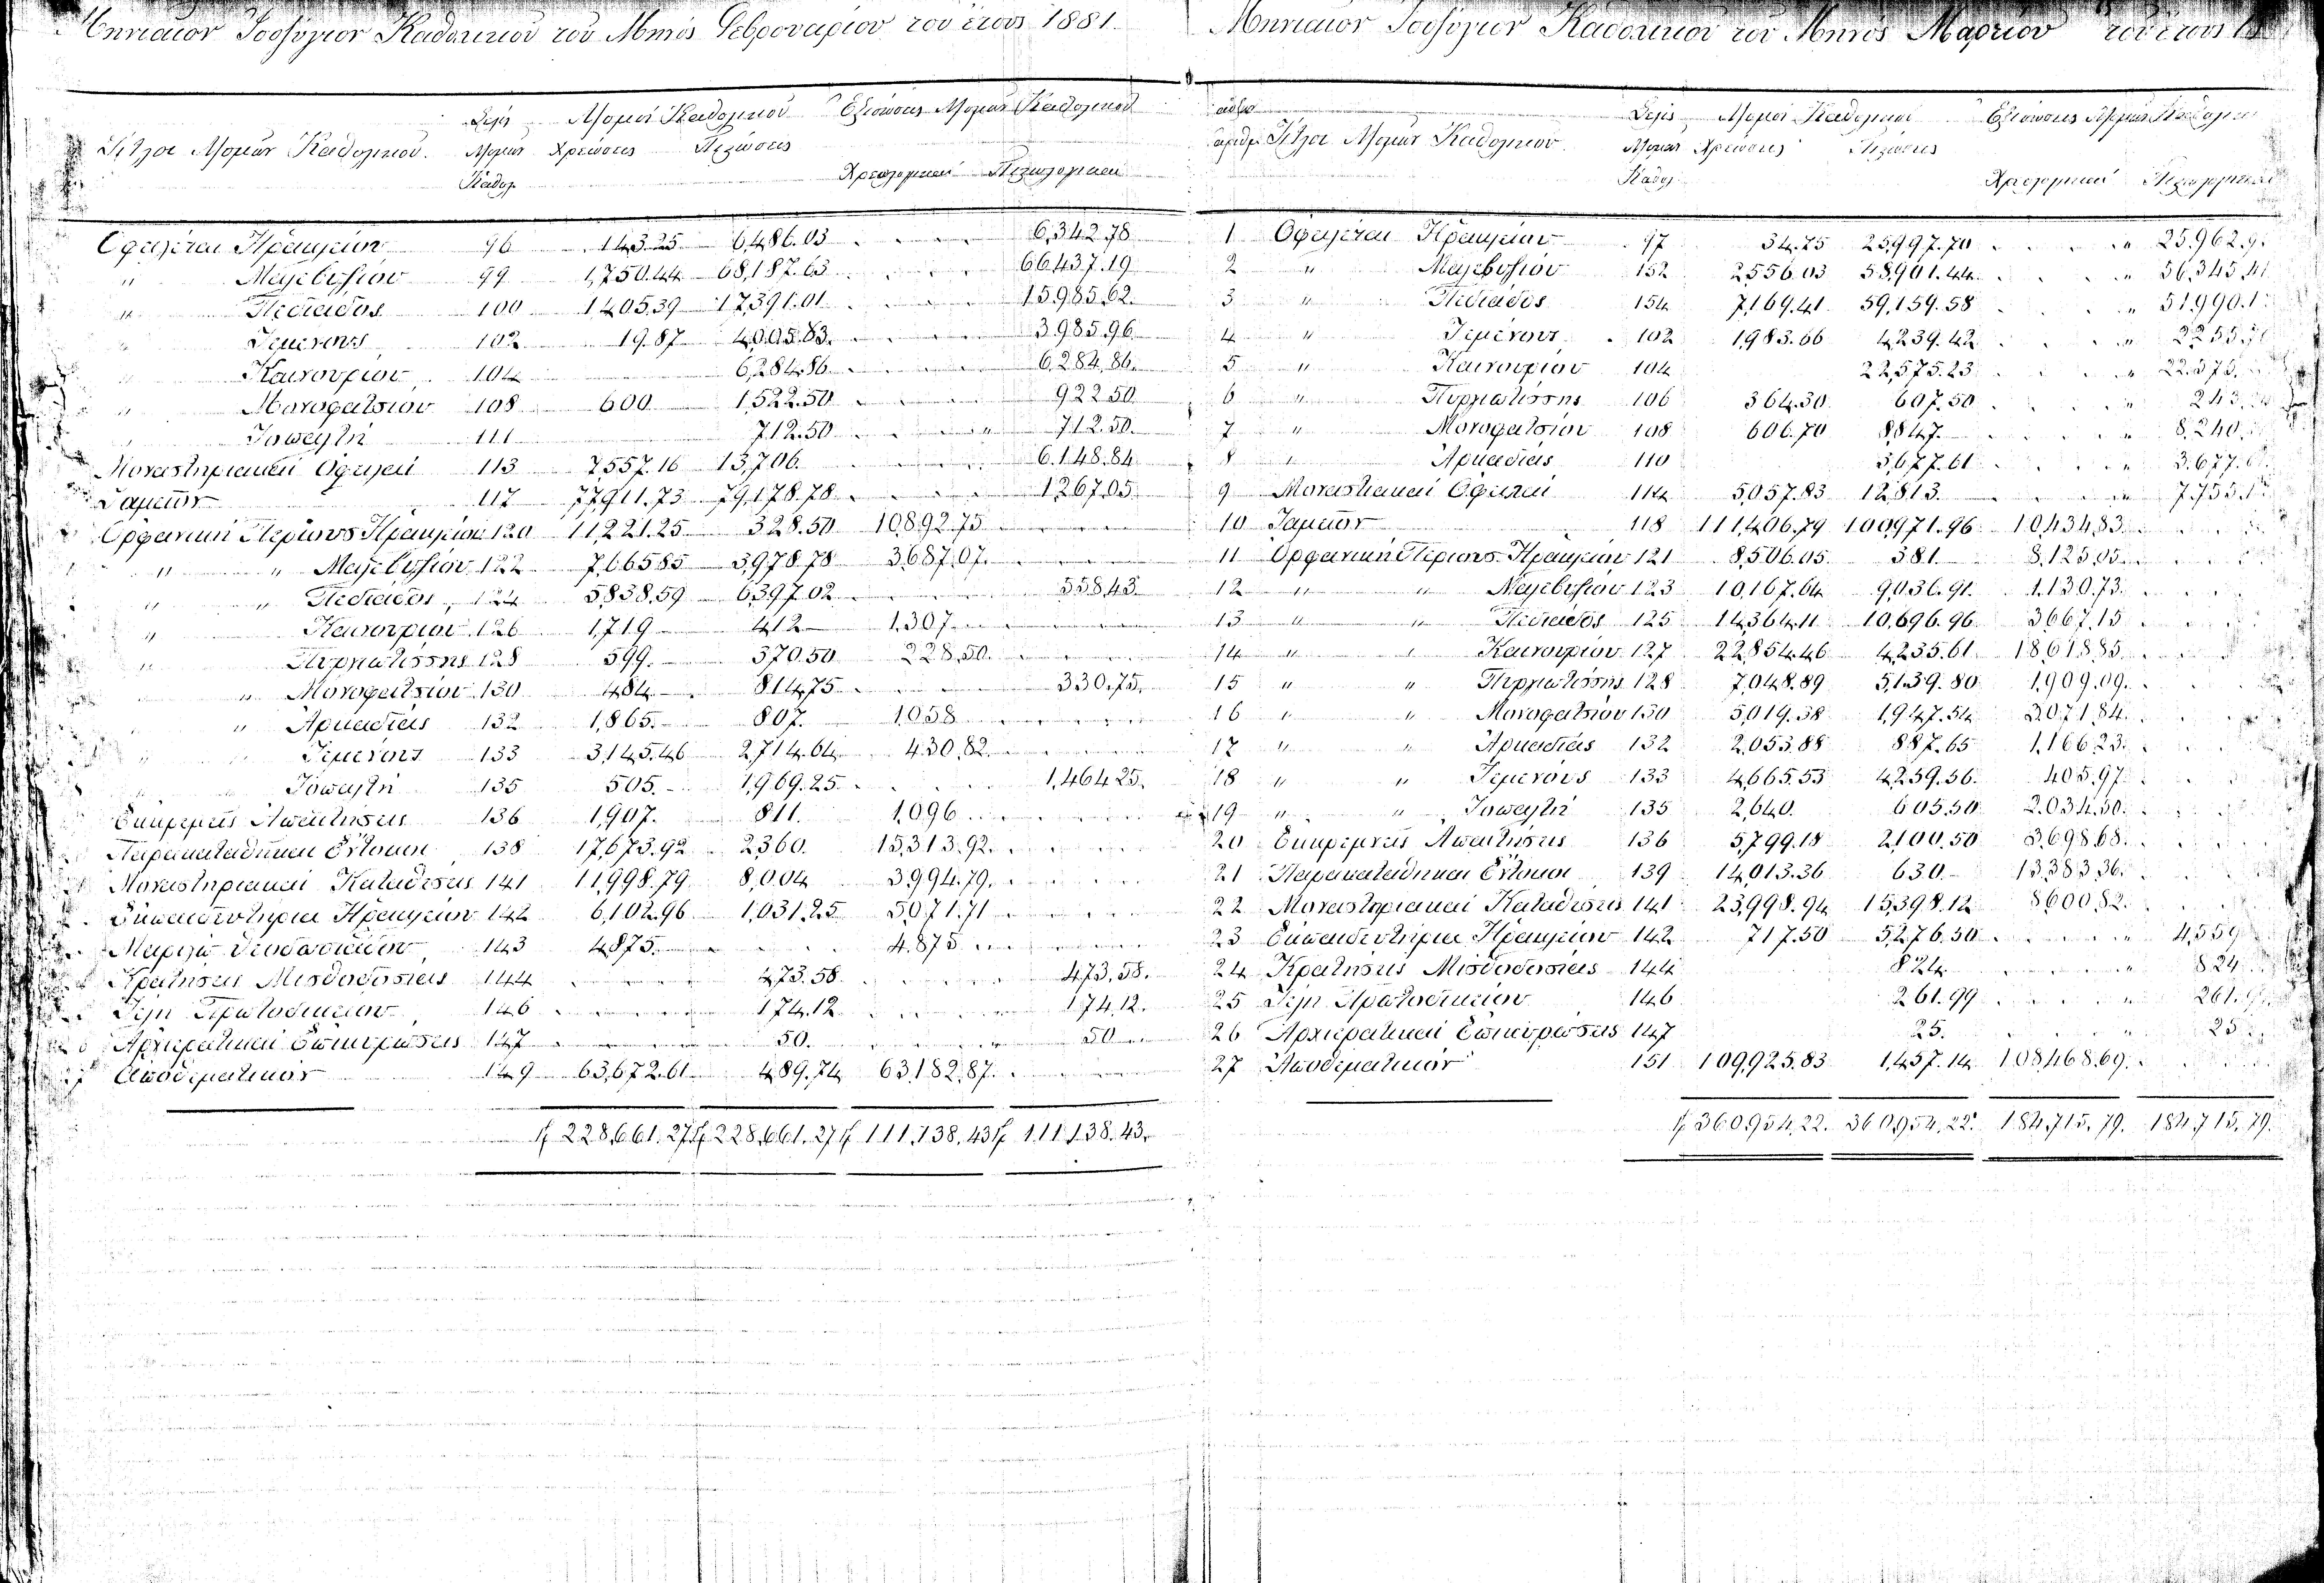 Μηνιαῖον Ἰσοζύγιον Καθολικοῦ τοῦ Μηνός Φεβρουαρίου του έτους 1881.
Τίτλοι Λ/σμῶν Καθολικοῦ. Σελίς Λ/σμῶν Καθολ. Λ/σμοί Καθολικοῦ Χρεώσεις Πιστώσεις Ἐξισώσεις Λ/σμῶν Καθολικοῦ Χρεωλογικαί Πιστωλογικαί
Οφειλέται Ηρακλείου 96 143.25 6,486.03 6,342.78
" Μαλεβυζίου 99 1,750.44 68,187.63 66,437.19
" Πεδιάδος 100 1,405.39 17,391.01 15,985.62
" Τεμένους 102 19.87 4,005.83 3,985.96
" Καινουρίου 104 6,284.86 6,284.86
" Μονοφατσίου 108 600 1,522.50 922.50
" Ἱσπεχλῆ 111 712.50 712.50
Μοναστηριακαί Οφειλαί 113 7,557.16 13,706. 6,148.84
Ταμεῖον 117 77,911.73 79,178.78 1,267.05
Ορφανική Περίους Ηρακλείου 120 11,221.25 328.50 10,892.75
" " Μαλεβυζίου 122 7,665.85 3,978.78 3,687.07
" " Πεδιάδος 124 5,838.59 6,397.02 558.43
" Καινουρίου 126 1,719 412 1,307
" Πυργιωτίσσης 128 599. 370.50 228.50
" Μονοφατσίου 130 484 814.75 330.75
" Αρκαδίας 132 1,865. 807. 1,058
" " Τεμένους 133 3,145.46 2,714.64 430.82
" " Ἱσπεχλῆ 135 505. 1,969.25 1,464.25
Εκκρεμεῖς Απαιτήσεις 136 1,907. 811. 1,096
Παρακαταθῆκαι Εντοκοι 138 17,673.92 2,360. 15,313.92
Μοναστηριακαί Καταθέσεις 141 11,998.79 8,004 3,994.79
Εκπαιδευτήρια Ηρακλείου 142 6,102.96 1,031.25 5,071.71
143 4,875. 4,875
Κρατήσεις Μισθοδοσίας 144 473.58 473.58
Τέλη Πρωτοδικείου 146 174.12 174.12
Αρχιερατικαί Επικυρώσεις 147 50. 50
Αποθεματικόν 149 63,672.61 489.74 63,182.87
228,661.27 228,661.27 111,138.43 111,138.43
Μηνιαῖον Ἰσοζύγιον Καθολικοῦ τοῦ Μηνός Μαρτίου τοῦ έτους
αὔξ. αριθμ. Τίτλοι Λ/σμῶν Καθολικοῦ Σελίς Λ/σμῶν Καθολ. Λ/σμοί Καθολικοῦ Χρεώσεις Πιστώσεις Ἐξισώσεις Λ/σμῶν Καθολικοῦ Χρεωλογικαί Πιστωλογικαί
1 Οφειλέται Ηρακλείου 97 34.75 25,997.70 25,962.9
2 " Μαλεβυζίου 152 2,556.03 58,901.44 56,345.41
3 " Πεδιάδος 154 7,169.41 59,159.58 51,990.1
4 " Τεμένους 102 1,983.66 4,239.42 2,255.
5 " Καινουρίου 104 22,575.23 22,575.
6 " Πυργιωτίσσης 106 364.30 607.50 243.
7 " Μονοφατσίου 108 606.70 8,847. 8,240.
8 " Αρκαδίας 110 3,677.61 3,677.6
9 Μοναστιακαί Οφειλαί 114 5,057.83 12,813. 7,755.1
10 Ταμεῖον 118 111,406.79 100,971.96 10,434.83
11 Ορφανική Περίους Ηρακλείου 121 8,506.05 381. 8,125.05
12 " " Μαλεβυζίου 123 10,167.64 9,036.91 1,130.73
13 " " Πεδιάδος 125 14,364.11 10,696.96 3,667.15
14 " " Καινουρίου 127 22,854.46 4,235.61 18,618.85
15 " " Πυργιωτίσσης 128 7,048.89 5,139.80 1,909.09
16 " " Μονοφατσίου 130 5,019.38 1,947.54 3,071.84
17 " " Αρκαδίας 132 2,053.88 887.65 1,166.23
18 " " Τεμένους 133 4,665.53 4,259.56 405.97
19 " " Ἱσπεχλῆ 135 2,640. 605.50 2,034.50
20 Εκκρεμεῖς Απαιτήσεις 136 5,799.18 2,100.50 3,698.68
21 Παρακαταθῆκαι Εντοκοι 139 14,013.36 630. 13,383.36
22 Μοναστηριακαί Καταθέσεις 141 23,998.94 15,398.12 8,600.82
23 Εκπαιδευτήρια Ηρακλείου 142 717.50 5,276.50 4,559
24 Κρατήσεις Μισθοδοσίας 144 824. 824
25 Τέλη Πρωτοδικείου 146 261.99 261.9
26 Αρχιερατικαί Επικυρώσεις 147 25. 25
27 Αποθεματικόν 151 109,925.83 1,457.14 108,468.69
360,954.22 360,954.22 184,715.79 184,715.79